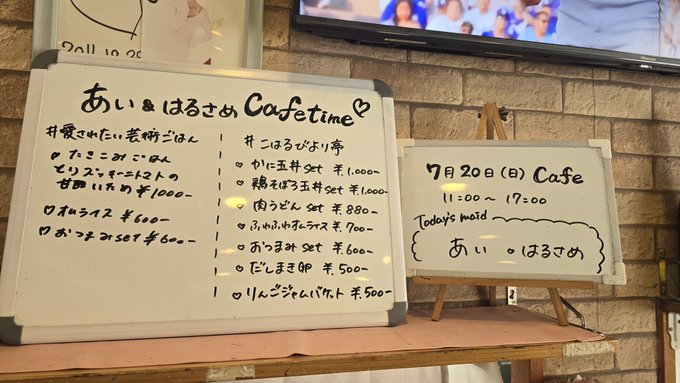 2011.12.29
あい & はるさめ Cafetime♡
#愛されたい芸術ごはん
♡たきこみごはん
とりズッキーニトマトの
甘酢いため ¥1000-
♡オムライス ¥600-
♡おつまみset ¥600-
#こはるびより亭
♡かに玉丼set ¥1.000-
♡鶏そぼろ玉丼set ¥1.000-
♡肉うどん set ¥880-
♡ふわふわオムライス ¥.700-
♡おつまみ set ¥.600-
♡だしまき卵 ¥.500-
♡りんごジャムバケット ¥.500-
7月20日(日) Cafe
11:00〜17:00
Today's maid
あい・はるさめ
Hisense